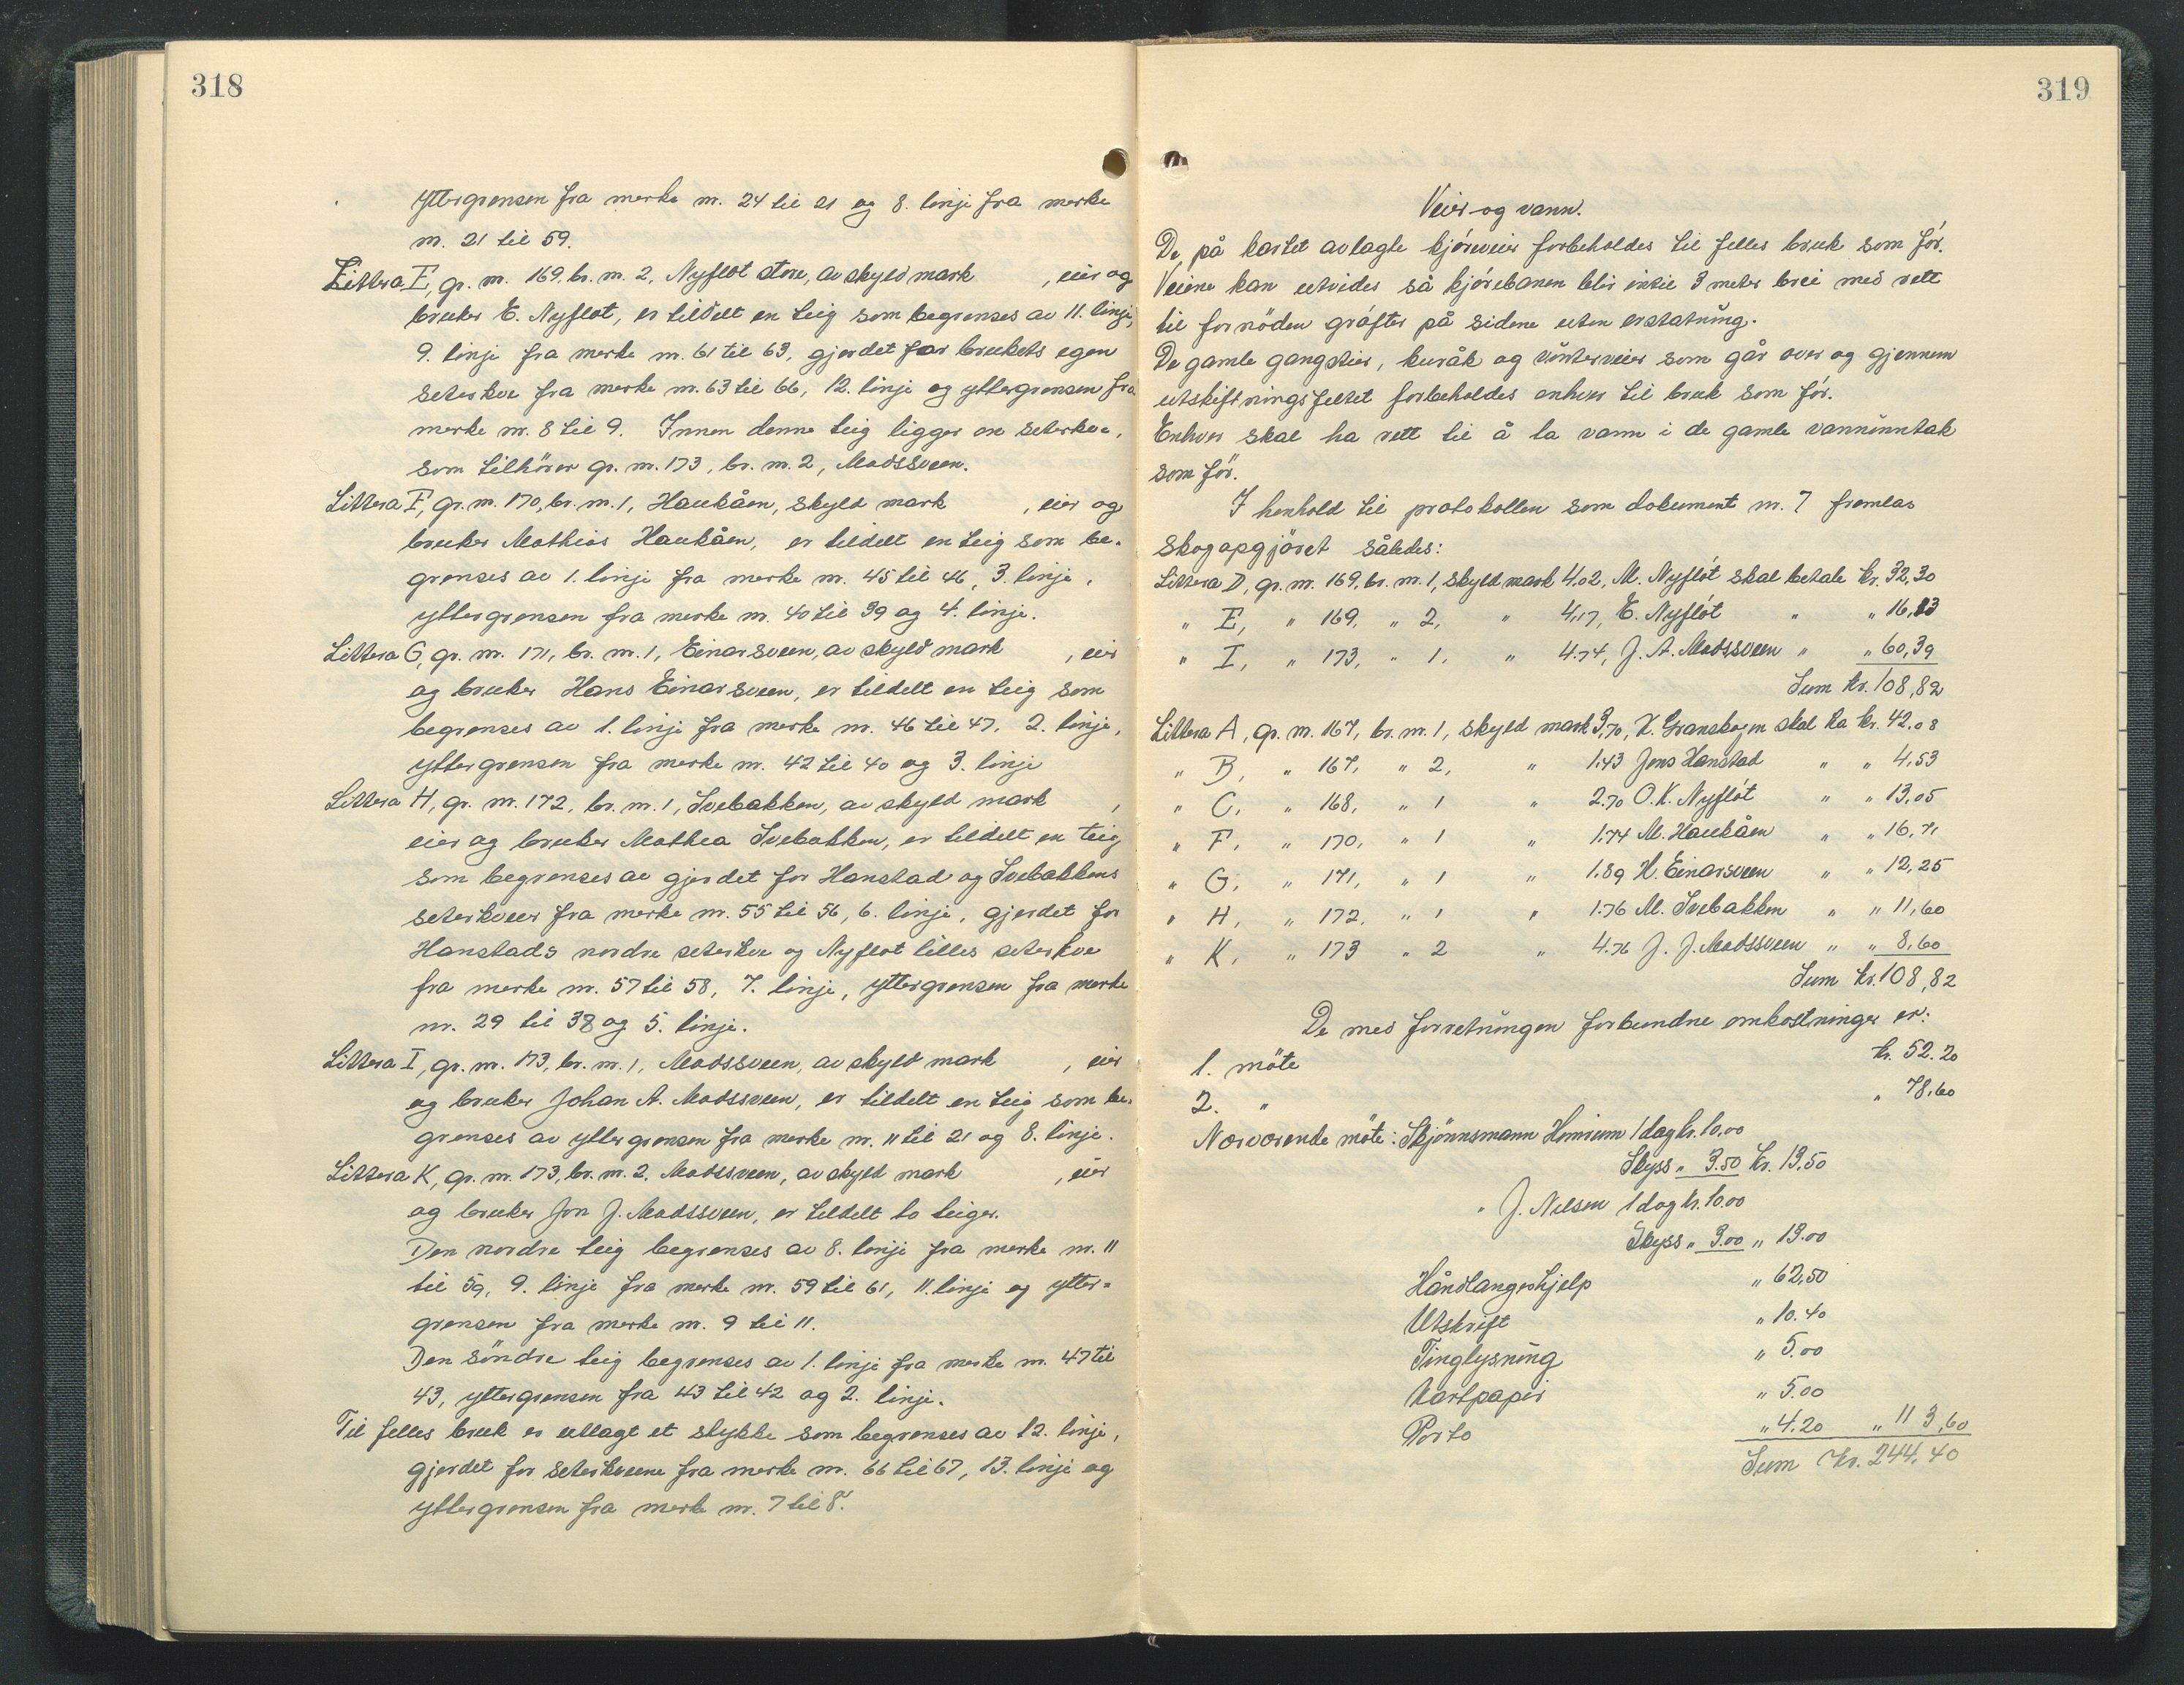 318
yttergrensen fra merke nr. 24 til 21 og 8. linje fra merke
nr. 21 til 59.
Littera E, gr. nr. 169, br. nr. 2, Nyflot store, av skyld mark , eier og
bruker E. Nyflot, er tildelt en teig som begrenses av 11. linje,
9. linje fra merke nr. 61 til 63, gjerdet for brukets egen
seterkve fra merke nr. 63 til 66, 12. linje og yttergrensen fra
merke nr. 8 til 9. Innen denne teig ligger en seterkve,
som tilhörer gr. nr. 173, br. nr. 2, Madssveen.
Littera F, gr. nr. 170, br. nr. 1, Haukåen, skyld mark , eier og
bruker Mathias Haukåen, er tildelt en teig som be-
grenses av 1. linje fra merke nr. 45 til 46, 3. linje,
yttergrensen fra merke nr. 40 til 39 og 4. linje.
Littera G, gr. nr. 171, br. nr. 1, Einarsveen, av skyld mark , eier
og bruker Hans Einarsveen, er tildelt en teig som
begrenses av 1. linje fra merke nr. 46 til 47, 2. linje,
yttergrensen fra merke nr. 42 til 40 og 3. linje
Littera H, gr. nr. 172, br. nr. 1, Svebakken, av skyld mark ,
eier og bruker Mathea Svebakken, er tildelt en teig
som begrenses av gjerdet for Hanstad og Svebakkens
seterkveer fra merke nr. 55 til 56, 6. linje, gjerdet for
Hanstads nordre seterkve og Nyflot lilles seterkve
fra merke nr. 57 til 58, 7. linje, yttergrensen fra merke
nr. 29 til 38 og 5. linje.
Littera I, gr. nr. 173, br. nr. 1, Madssveen, av skyld mark , eier
og bruker Johan A. Madssveen, er tildelt en teig som be-
grenses av yttergrensen fra merke nr. 11 til 21 og 8. linje.
Littera K, gr. nr. 173, br. nr. 2, Madssveen, av skyld mark , eier
og bruker Jon J. Madssveen, er tildelt to teiger.
Den nordre teig begrenses av 8. linje fra merke nr. 11
til 59, 9. linje fra merke nr. 59 til 61, 11. linje og ytter=
grensen fra merke nr. 9 til 11.
Den söndre teig begrenses av 1. linje fra merke nr. 47 til
43, yttergrensen fra 43 til 42 og 2. linje.
Til felles bruk er utlagt et stykke som begrenses av 12. linje,
gjerdet for seterkveene fra merke nr. 66 til 67, 13. linje og
yttergrensen fra merke nr. 7 til 8.
319
Veier og vann.
De på kartet avlagte kjöreveier forbeholdes til felles bruk som för.
Veiene kan utvides så kjörebanen blir intil 3 meter brei med rett
til fornöden gröfter på sidene uten erstatning.
De gamle gangstier, kuråk og vinterveier som går over og gjennem
utskiftningsfeltet forbeholdes enhver til bruk som för.
Enhver skal ha rett til å ta vann i de gamle vanninntak
som för.
I henhold til protokollen som dokument nr. 7 fremlas
skogopgjöret således:
Littera D, gr. nr. 169, br. nr. 1, skyld mark 4,02, M. Nyflöt skal betale kr. 32,30
" E, " 169, " 2, " 4,17, E. Nyflöt " " 16,13
" I, " 173, " 1, " 4.74, J. A. Madssveen " " 60,39
Sum kr. 108,82
Littera A, gr. nr. 167, br. nr. 1, skyld mark 3,70, K. Granskogen skal ha kr. 42,08
" B, " 167, " 2, " 1.43 Jens Hanstad " " 4,53
" C, " 168, " 1 " 2.70 O. K. Nyflöt " " 13,05
" F, " 170, " 1 " 1.74 M. Haukåen " " 16,71
" G, " 171, " 1 " 1.89 H. Einarsveen " " 12,25
" H, " 172, " 1 " 1.76 M. Svebakken " " 11,60
" K, " 173 " 2 " 4.76 J. J. Madssveen " " 8,60
Sum kr. 108,82
De med forretningen forbundne omkostninger er:
1. möte kr. 52.20
2. " " 78,60
Nærværende möte: Skjönnsmann 1 dag kr. 10,00
Skyss " 3.50 kr. 13,50
" J. Nilsen 1 dag kr. 10.00
Skyss " 3.00 " 13.00
Håndlangerhjelp " 62,50
Utskrift " 10.40
Tinglysning " 5.00
Kartpapir " 5.00
Porto " 4.20 " 113,60
Sum kr. 244,40